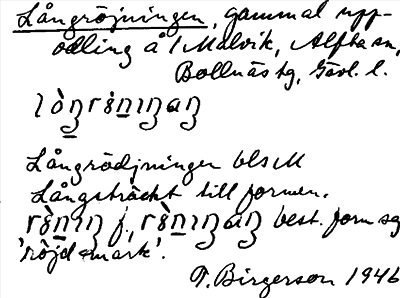 Långröjningen, gammal upp-
odling å Malvik, Alfta sn,
Bollnäs tg, Gävl. l.
Långrödjningen bls M
Långsträckt till formen.
f., best. form sg
'röjd mark'.
T. Birgerson 1946